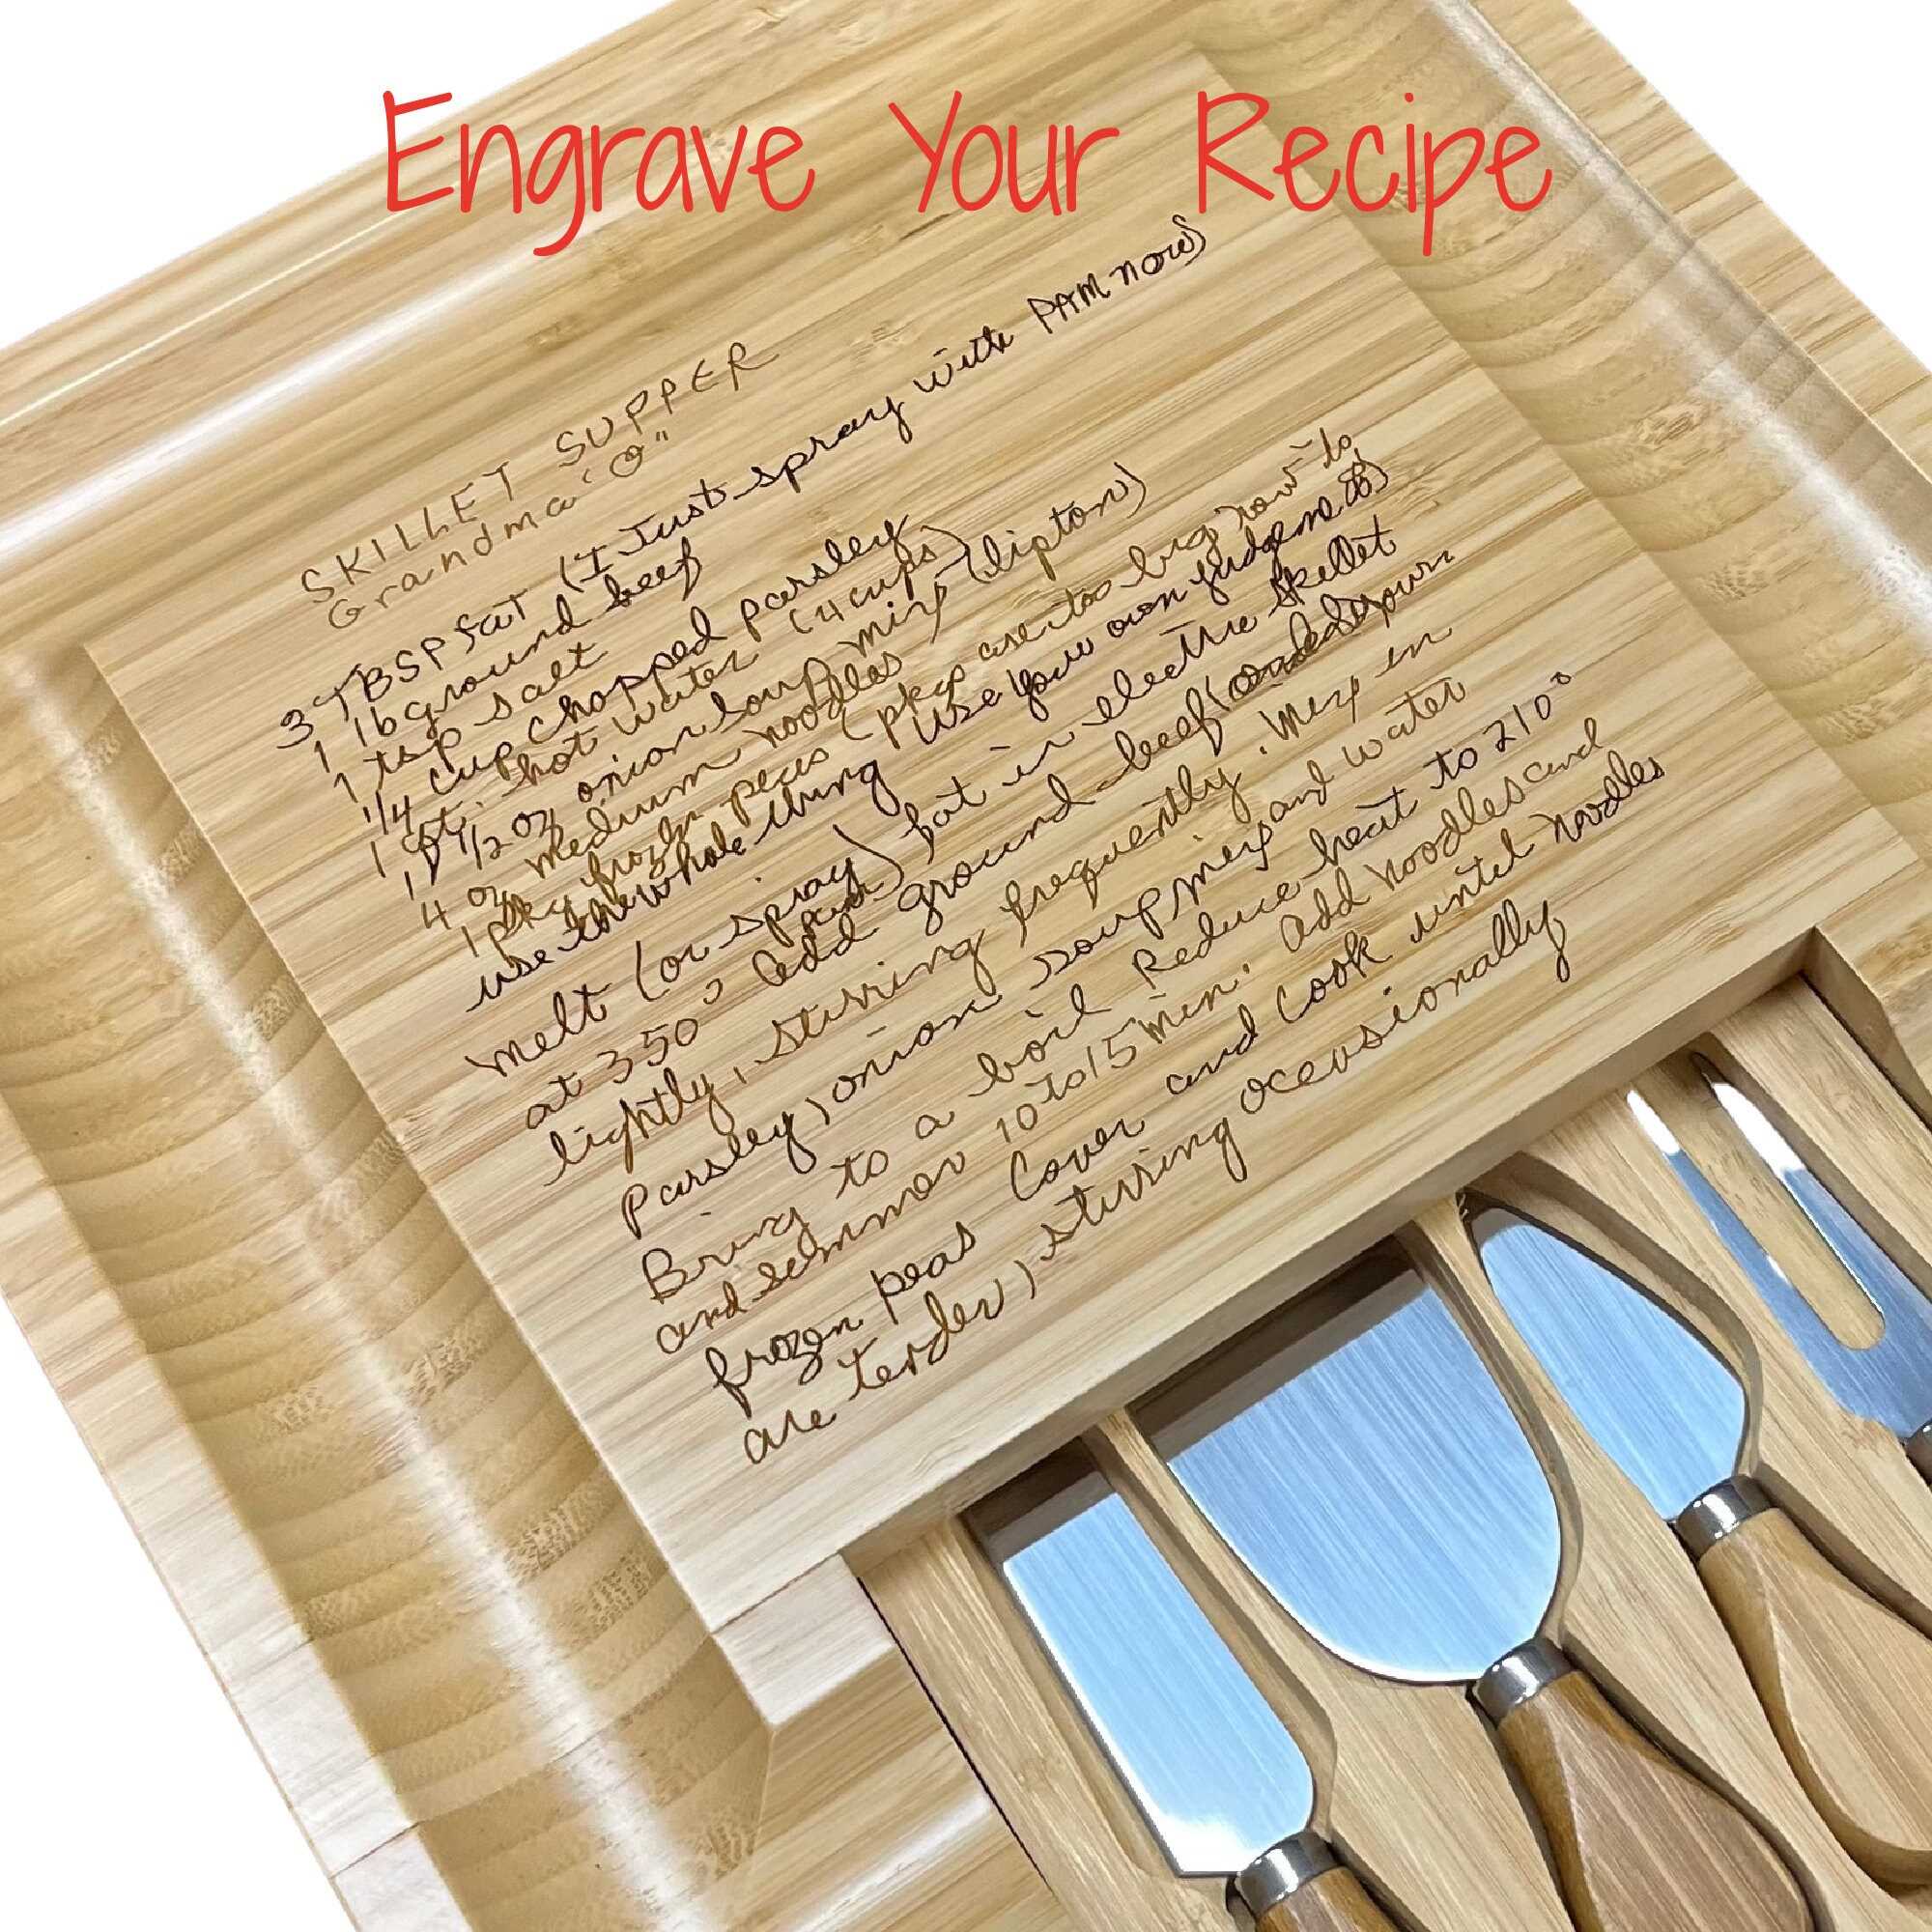 Engrave Your Recipe
SKILLET SUPPER
Grandma "O"
3 TBSP fat (I Just spray with PAM now)
1 lb ground beef
1 tsp salt
1/4 cup chopped parsley
1 qt. hot water (4 cups)
1 1/2 oz onion soup mix (lipton)
4 oz medium noodles
1 pkg frozen peas (pkgs are too big now to
use the whole thing use your own judgement)
melt (or spray pan) fat in electric skillet
at 350° add ground beef brown
lightly, stirring frequently. Mix in
Parsley, onion soup mix and water
Bring to a boil Reduce heat to 210°
and simmer 10 to 15 min. add noodles and
frozen peas Cover and cook until noodles
are tender, stirring occasionally